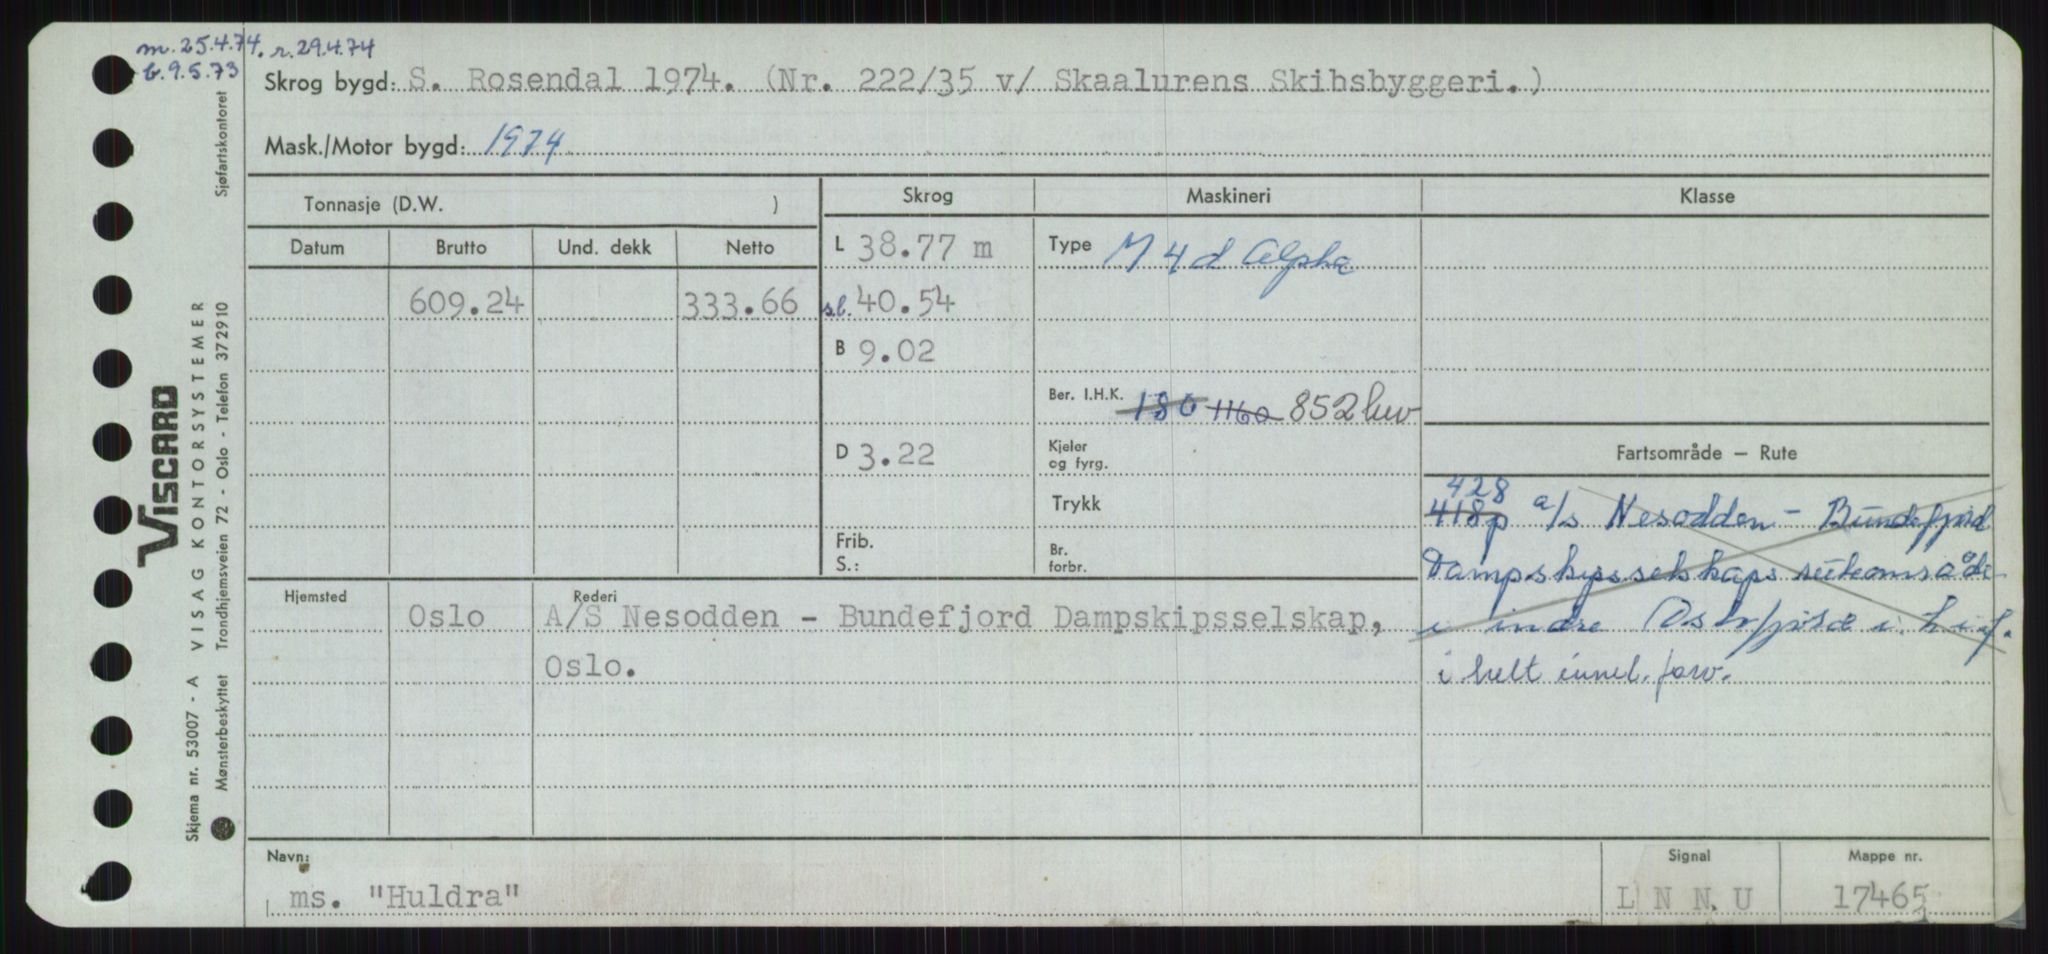 m. 25.4.74. r. 29.4.74
b. 9.5.73
Skrog bygd: S. Rosendal 1974. (Nr. 222/35 v/ Skaalurens Skibsbyggeri.)
Mask./Motor bygd: 1974
Tonnasje (D.W. )
Skrog Maskineri Klasse
Datum Brutto Und. dekk Netto
L 38.77 m Type M 4 d Alpha
609.24 333.66 s.l. 40.54
B 9.02
Ber. I.H.K. 180 1160 852 kw
D 3.22 Kjeler og fyrg.
Fartsområde – Rute
Trykk
Frib.
S.:
Br. forbr.
428
418p a/s Nesodden - Bundefjord
Dampskipsselskaps ruteområde
i indre Oslofjord i h.i.f.
i helt innel. farv.
Hjemsted Rederi
Oslo A/S Nesodden - Bundefjord Dampskipsselskap,
Oslo.
Navn: Signal Mappe nr.
ms. "Huldra" L N N U 17465
VISCARD
VISAG KONTORSYSTEMER
Sjøfartskontoret
Trondhjemsveien 72 - Oslo - Telefon 372910
Skjema nr. 53007 - A
Mønsterbeskyttet